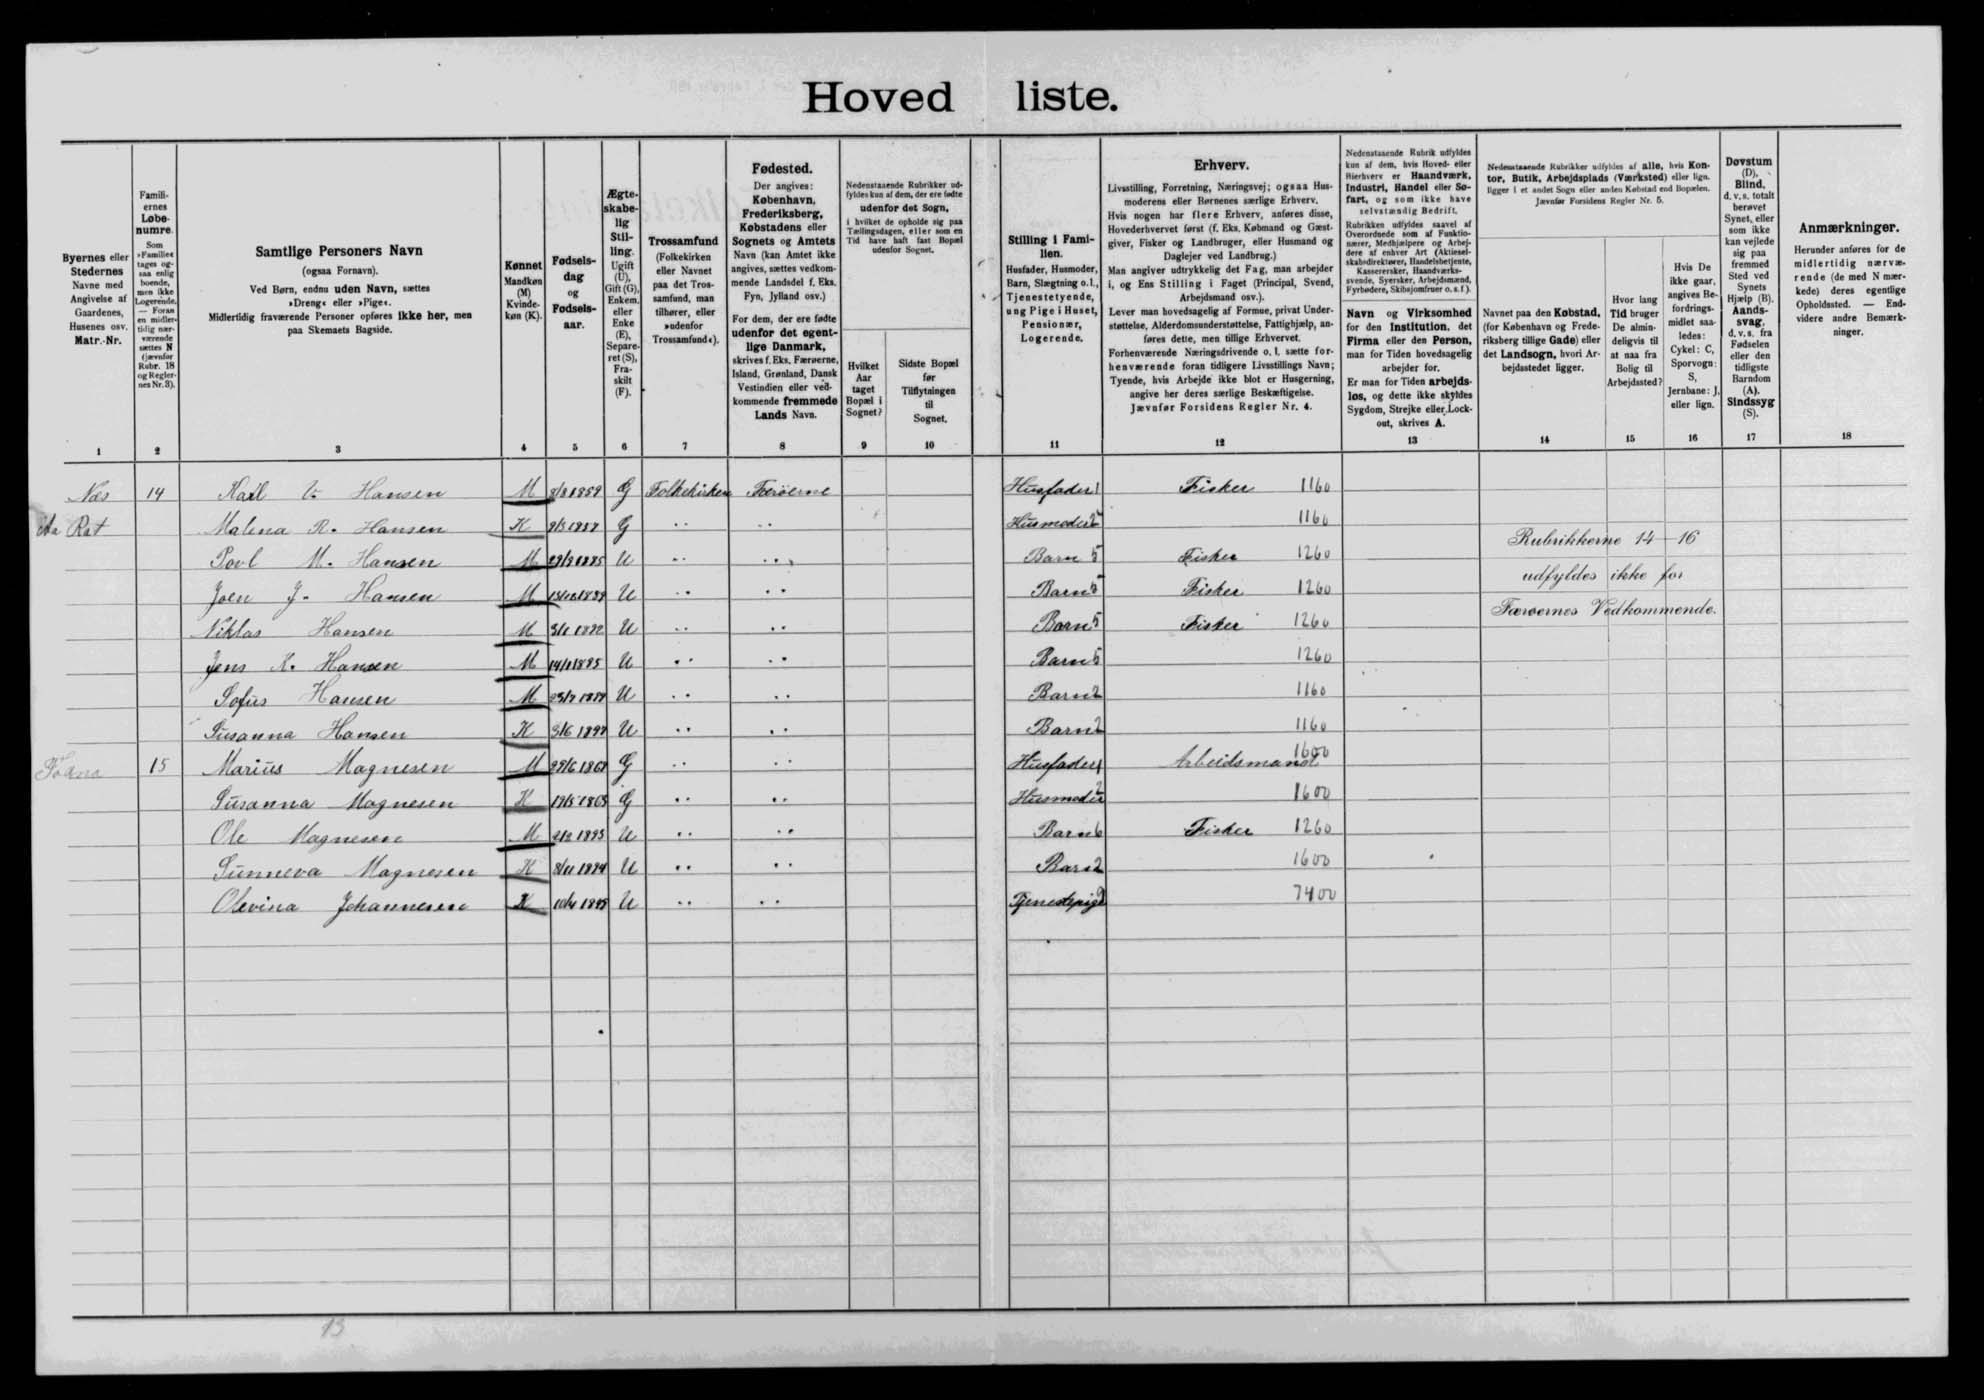 Hoved liste.
Byernes eller
Stedernes
Navne med
Angivelse af
Gaardenes,
Husenes osv.
Matr.-Nr.
Famili-
ernes
Løbe-
numre.
Som
»Familie«
tages og-
saa enlig
boende,
men ikke
Logerende,
— Foran
en midler-
tidig nær-
værende
sættes N
(jævnfør
Rubr. 18
og Regler-
nes Nr. 3).
Samtlige Personers Navn
(ogsaa Fornavn).
Ved Børn, endnu uden Navn, sættes
»Dreng« eller »Pige«.
Midlertidig fraværende Personer opføres ikke her, men
paa Skemaets Bagside.
Kønnet
Mandkøn
(M)
Kvinde-
køn (K).
Fødsels-
dag
og
Fødsels-
aar.
Ægte-
skabe-
lig
Stil-
ling.
Ugift
(U),
Gift (G),
Enkem.
eller
Enke
(E),
Separe-
ret (S),
Fra-
skilt
(F).
Trossamfund
(Folkekirken
eller Navnet
paa det Tros-
samfund, man
tilhører, eller
»udenfor
Trossamfund«).
Fødested.
Der angives:
København,
Frederiksberg,
Købstadens eller
Sognets og Amtets
Navn (kan Amtet ikke
angives, sættes vedkom-
mende Landsdel f. Eks.
Fyn, Jylland osv.)
For dem, der ere fødte
udenfor det egent-
lige Danmark,
skrives f. Eks. Færøerne,
Island, Grønland, Dansk
Vestindien eller ved-
kommende fremmede
Lands Navn.
Nedenstaaende Rubrikker ud-
fyldes kun af dem, der ere fødte
udenfor det Sogn,
i hvilket de opholde sig paa
Tællingsdagen, eller som en
Tid have haft fast Bopæl
udenfor Sognet.
Hvilket
Aar
taget
Bopæl i
Sognet?
Sidste Bopæl
før
Tilflytningen
til
Sognet.
Stilling i Fami-
lien.
Husfader, Husmoder,
Barn, Slægtning o. l.,
Tjenestetyende,
ung Pige i Huset,
Pensionær,
Logerende.
Erhverv.
Livsstilling, Forretning, Næringsvej; ogsaa Hus-
moderens eller Børnenes særlige Erhverv.
Hvis nogen har flere Erhverv, anføres disse,
Hovederhvervet først (f. Eks. Købmand og Gæst-
giver, Fisker og Landbruger, eller Husmand og
Daglejer ved Landbrug.)
Man angiver udtrykkelig det Fag, man arbejder
i, og Ens Stilling i Faget (Principal, Svend,
Arbejdsmand osv.).
Lever man hovedsagelig af Formue, privat Under-
støttelse, Alderdomsunderstøttelse, Fattighjælp, an-
føres dette, men tillige Erhvervet.
Forhenværende Næringsdrivende o. l. sætte for-
henværende foran tidligere Livsstillings Navn;
Tyende, hvis Arbejde ikke blot er Husgerning,
angive her deres særlige Beskæftigelse.
Jævnfør Forsidens Regler Nr. 4.
Nedenstaaende Rubrik udfyldes
kun af dem, hvis Hoved- eller
Bierhverv er Haandværk,
Industri, Handel eller Sø-
fart, og som ikke have
selvstændig Bedrift.
Rubrikken udfyldes saavel af
Overordnede som af Funktio-
nærer, Medhjælpere og Arbej-
dere af enhver Art (Aktiesel-
skabsdirektører, Handelsbetjente,
Kasserersker, Haandværks-
svende, Syersker, Arbejdsmænd,
Fyrbødere, Skibsjomfruer o. s. f.).
Navn og Virksomhed
for den Institution, det
Firma eller den Person,
man for Tiden hovedsagelig
arbejder for.
Er man for Tiden arbejds-
løs, og dette ikke skyldes
Sygdom, Strejke eller Lock-
out, skrives A.
Nedenstaaende Rubrikker udfyldes af alle, hvis Kon-
tor, Butik, Arbejdsplads (Værksted) eller lign.
ligger i et andet Sogn eller anden Købstad end Bopælen.
Jævnfør Forsidens Regler Nr. 5.
Navnet paa den Købstad,
(for København og Frede-
riksberg tillige Gade) eller
det Landsogn, hvori Ar-
bejdsstedet ligger.
Hvor lang
Tid bruger
De almin-
deligvis til
at naa fra
Bolig til
Arbejdssted?
Hvis De
ikke gaar,
angives Be-
fordrings-
midlet saa-
ledes:
Cykel: C,
Sporvogn:
S,
Jernbane: J,
eller lign.
Døvstum
(D),
Blind,
d. v. s. totalt
berøvet
Synet, eller
som ikke
kan vejlede
sig paa
fremmed
Sted ved
Synets
Hjælp (B).
Aands-
svag,
d. v. s. fra
Fødselen
eller den
tidligste
Barndom
(A).
Sindssyg
(S).
Anmærkninger.
Herunder anføres for de
midlertidig nærvæ-
rende (de med N mær-
kede) deres egentlige
Opholdssted. — End-
videre andre Bemærk-
ninger.
1 2 3 4 5 6 7 8 9 10 11 12 13 14 15 16 17 18
Næs 14 Karl V. Hansen M 8/8 1859 G Folkekirken Færöerne Husfader 1 Fisker 1160
Rat Malena R. Hansen K G " " Husmoder 2 1160
Rubrikkerne 14–16
Povl M. Hansen M U " " Barn 5 Fisker 1260
udfyldes ikke for
Joen J. Hansen M U " " Barn 5 Fisker 1260
Færøernes Vedkommende.
Niklas Hansen M U " " Barn 5 Fisker 1260
Jens K. Hansen M U " " Barn 5 1260
Sofus Hansen M U " " Barn 2 1160
Susanna Hansen K U " " Barn 2 1160
15 Marius Magnesen M G " " Husfader 1 Arbeidsmand 1600
Susanna Magnesen K G " " Husmoder 2 1600
Ole Magnesen M U " " Barn 6 Fisker 1260
Sunneva Magnesen K 8/11 1894 U " " Barn 2 1600
Olevina Johannesen K U " " Tjenestepige 7400
13